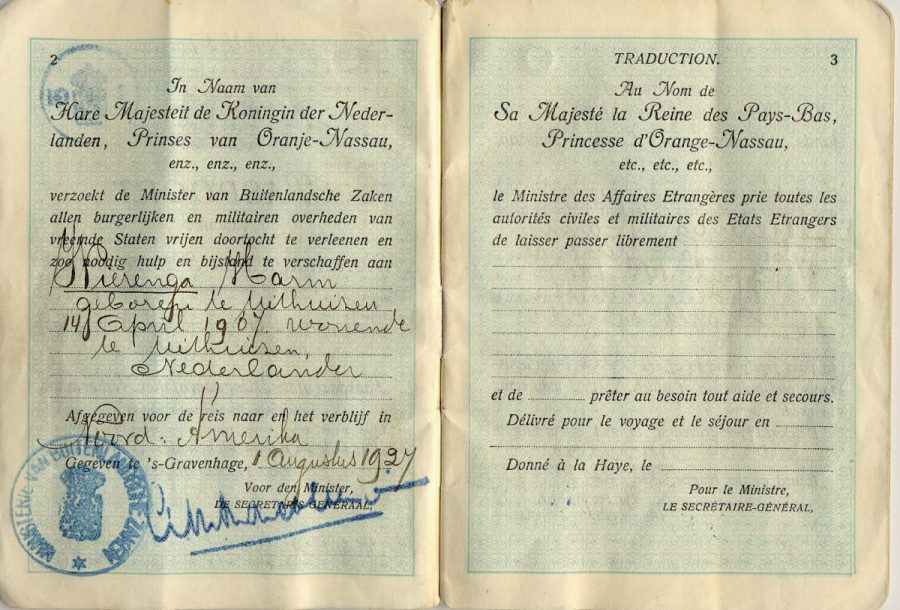 2
In Naam van
Hare Majesteit de Koningin der Neder-
landen, Prinses van Oranje-Nassau,
enz., enz., enz.,
verzoekt de Minister van Buitenlandsche Zaken
allen burgerlijken en militairen overheden van
vreemde Staten vrijen doortocht te verleenen en
zoo noodig hulp en bijstand te verschaffen aan
Wierenga Harm
geboren te Uithuizen
14 April 1907 wonende
te Uithuizen,
Nederlander
Afgegeven voor de reis naar en het verblijf in
Noord-Amerika
Gegeven te 's-Gravenhage, 1 Augustus 1927
Voor den Minister,
DE SECRETARIS-GENERAAL,
MINISTERIE VAN BUITENLANDSCHE ZAKEN
TRADUCTION. 3
Au Nom de
Sa Majesté la Reine des Pays-Bas,
Princesse d'Orange-Nassau,
etc., etc., etc.,
le Ministre des Affaires Etrangères prie toutes les
autorités civiles et militaires des Etats Etrangers
de laisser passer librement
et de prêter au besoin tout aide et secours.
Délivré pour le voyage et le séjour en
Donné à la Haye, le
Pour le Ministre,
LE SECRÉTAIRE-GÉNÉRAL,